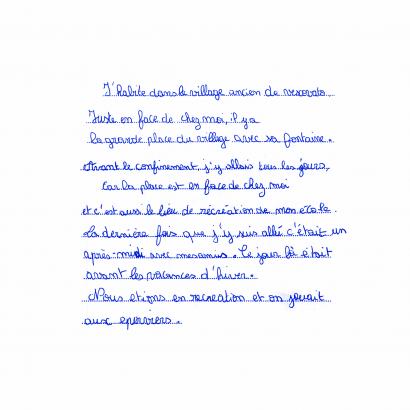 J'habite dans le village ancien de vescovato.
Juste en face de chez moi, il y a
la grande place du village avec sa fontaine.
Avant le confinement, j'y allais tous les jours,
car la place est en face de chez moi
et c'est aussi le lieu de récréation de mon école.
La dernière fois que j'y suis allé c'était un
après-midi avec mes amis. Ce jour là était
avant les vacances d'hiver.
Nous etions en recreation et on jouait
aux eperviers.